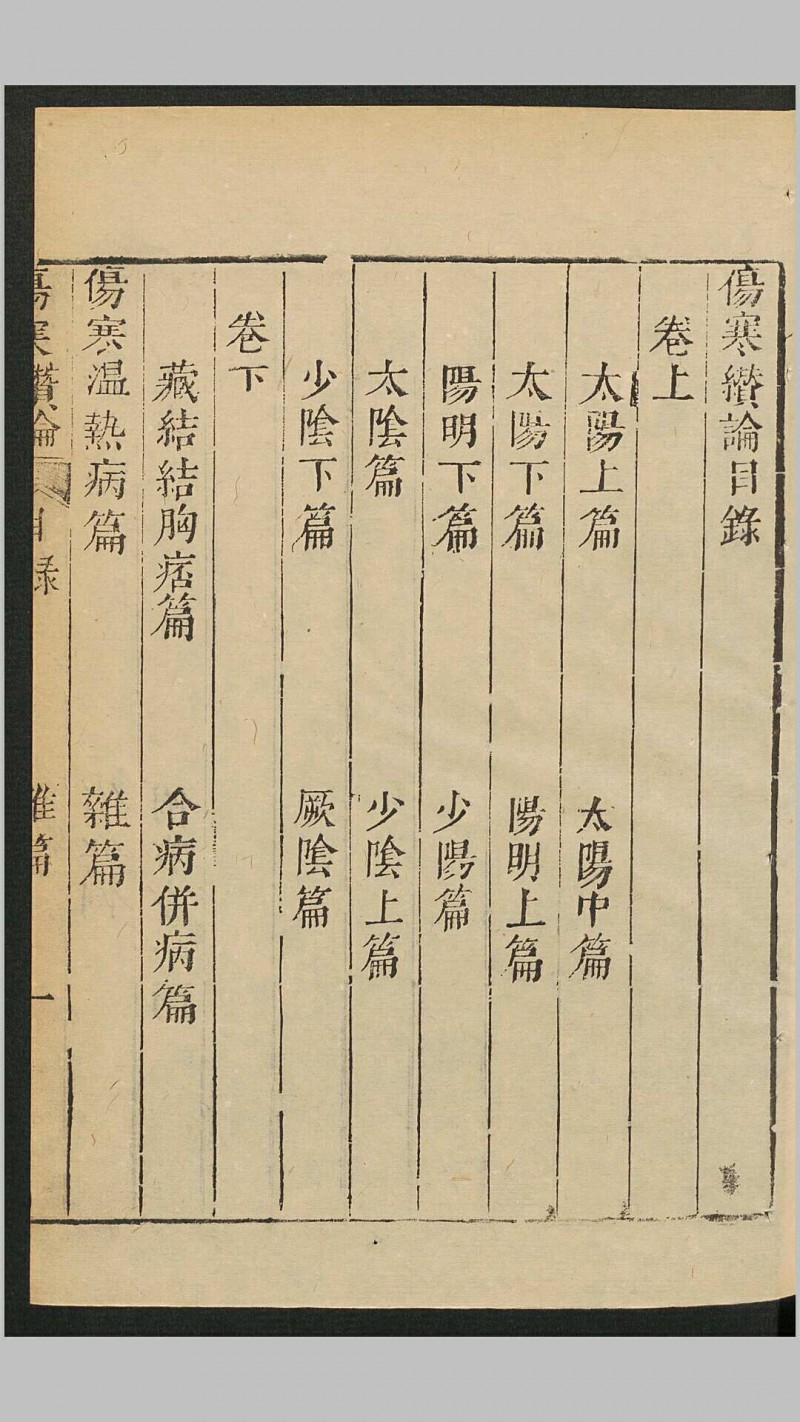 傷寒纘論目錄
卷上
太陽上篇 太陽中篇
太陽下篇 陽明上篇
陽明下篇 少陽篇
太陰篇 少陰上篇
少陰下篇 厥陰篇
卷下
藏結結胸痞篇 合病併病篇
傷寒温熱病篇 雜篇
傷寒纘論 目錄 雜篇 一